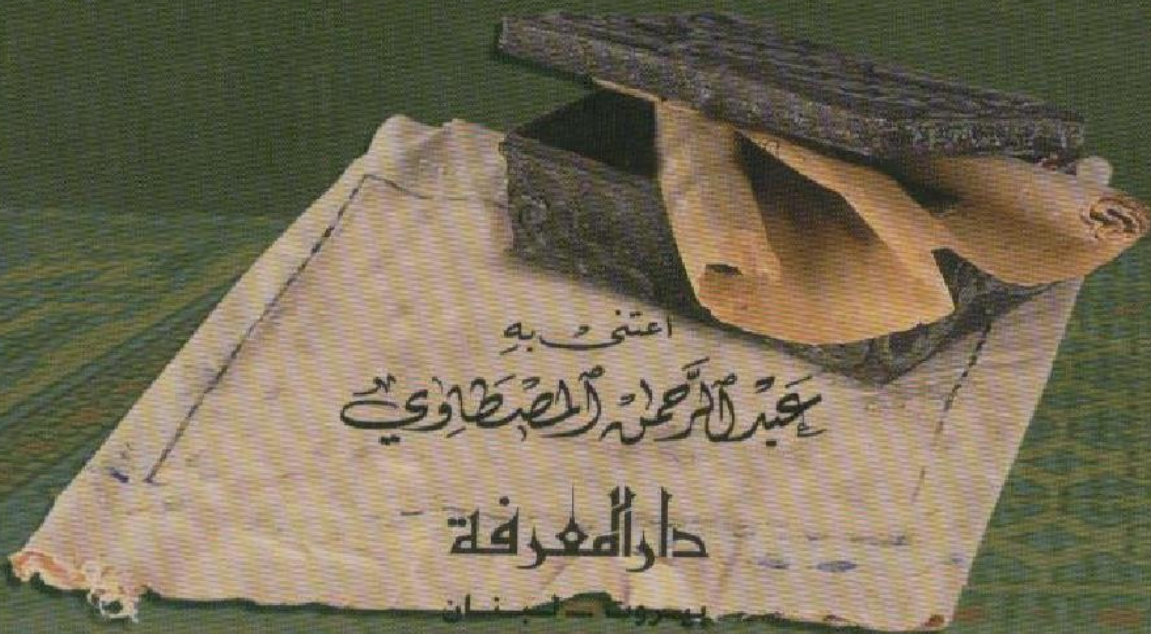 اعتنى بهِ
عَبْد الرَّحمٰن المصْطَاوي
دار المعرفة
بيروت - لبنان